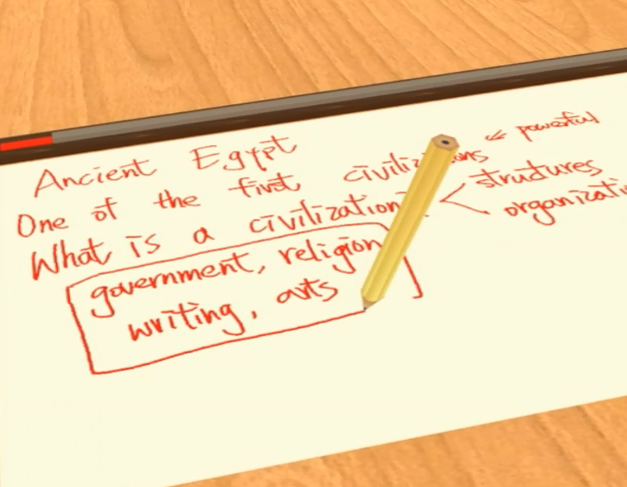 Ancient Egypt
One of the first civilizations « powerful
What is a civilization? < structures
organizati
government, religion
writing, arts